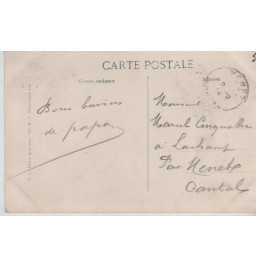 CARTE POSTALE
Correspondance
Adresse
MENET
Bons baisers
de papa
Monsieur
Marcel
à Lachamp
Par Menet
Cantal